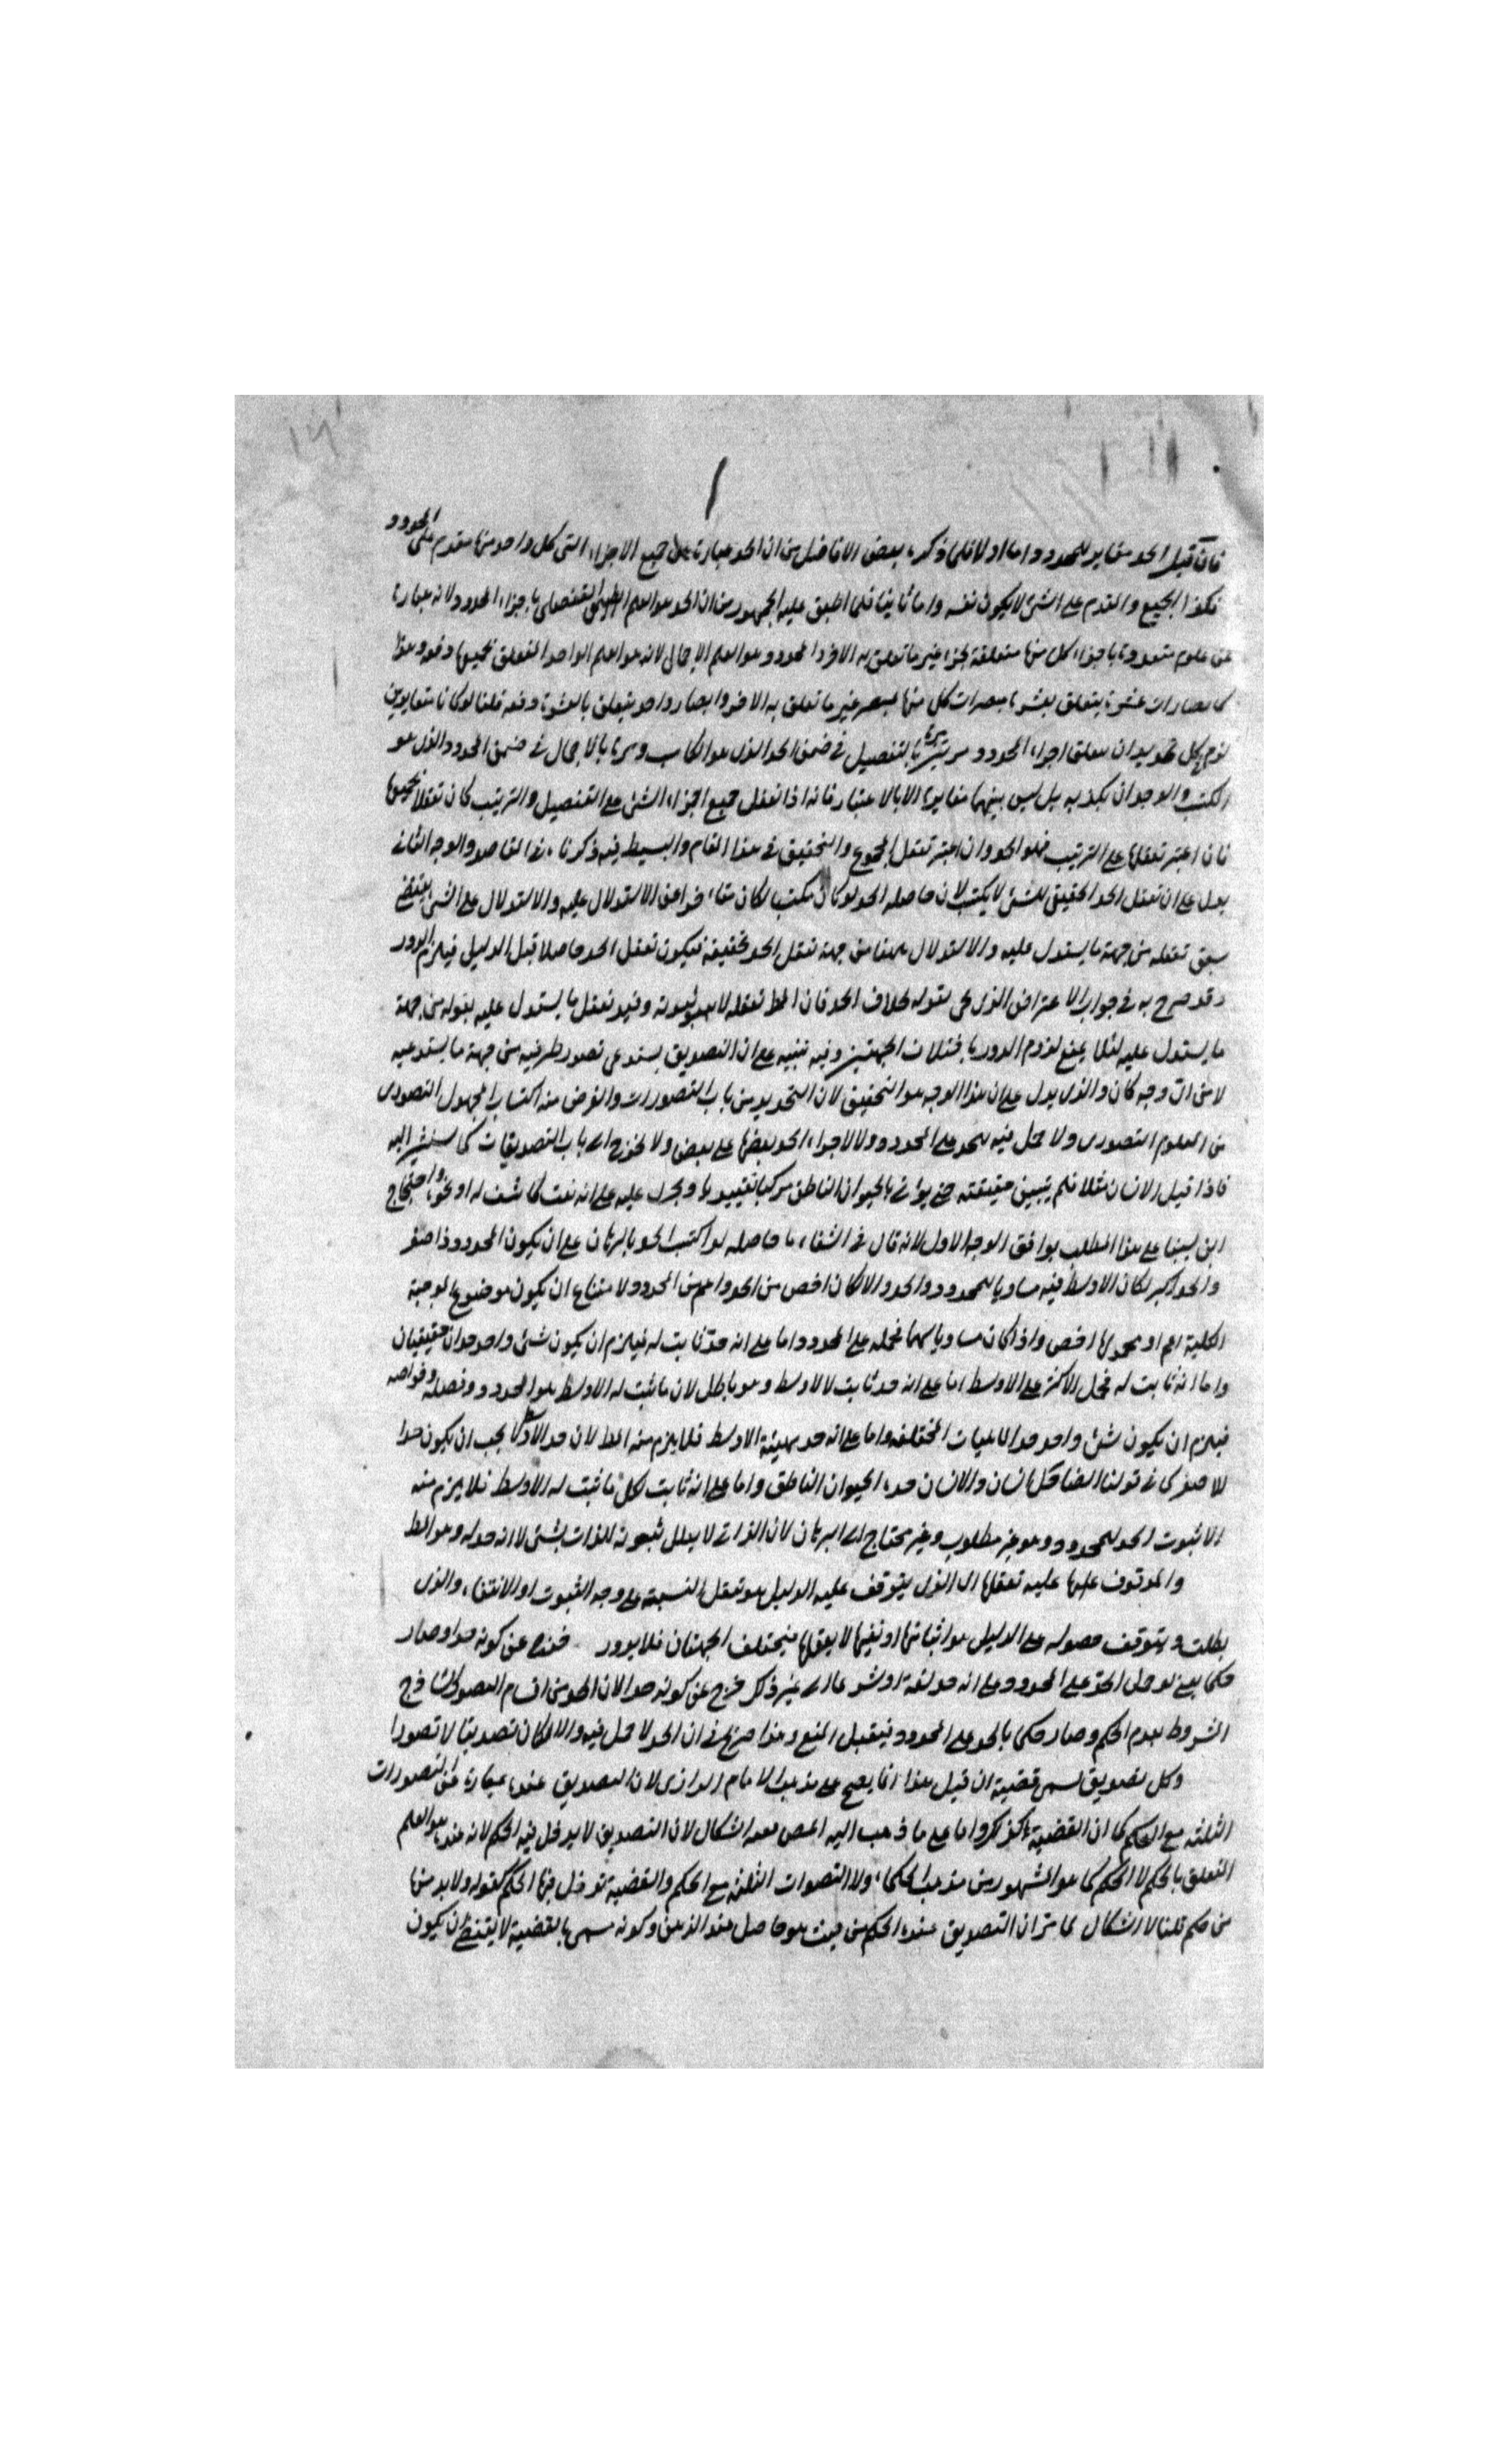 ١٣
فان قيل الحد مغاير للمحدود اما اولا فلما ذكره بعض الافاضل من ان الحد عبارة عن جميع الاجزاء التى كل واحد منها مقدم على المحدود
فكذا الجميع والمقدم على الشئ لا يكون نفسه واما ثانيا فلما اطبق عليه الجمهور من ان الحد هو العلم التفصيلى باجزاء المحدود لانه عبارة
عن علوم متعددة باجزاء كل منها متعلقة بجزء غير ما تعلق به الاخر والمحدود هو العلم الاجمالى لانه هو العلم الواحد المتعلق بجميعها دفعة وهذا
كابصارات عشرة يتعلق بعشرة مبصرات كل منها بمبصر غير ما تعلق به الاخر وابصار واحد يتعلق بالعشرة دفعة قلنا لو كانا متغايرين
لزم فى كل تحديد ان يتعلق اجزاء المحدود مرتين مرة بالتفصيل فى ضمن الحد الذى هو الكاسب ومرة بالاجمال فى ضمن المحدود الذى هو
المكتسب والوجدان يكذبه بل ليس بينهما مغايرة الا بالاعتبار فانه اذا تعقل جميع اجزاء الشئ على التفصيل والترتيب كان تعقلا لجميعها
فان اعتبر تعقلها على الترتيب فهو الحد وان اعتبر تعقل المجموع والتحقيق فى هذا المقام والبسيط فيه ذكرنا والوجه الثانى
يدل على ان تعقل الحد الحقيقى للشئ لا يكتسب لان حاصله الحد لو كان مكتسبا لكان الاستدلال عليه والاستدلال على الشئ يقتضى
سبق تعقله من جهة ما يستدل عليه والاستدلال ههنا من جهة تعقل الحد بحقيقته فيكون تعقل الحد حاصلا قبل الدليل فيلزم الدور
وقد صرح به فى جواب الاعتراض الذى بقوله بخلاف الحد فان المط تعقله لا ثبوته وقيد تعقل ما يستدل عليه بقوله من جهة
ما يستدل عليه لئلا يمنع لزوم الدور باختلاف الجهتين وفيه تنبيه على ان التصديق يستدعى تصور طرفيه من جهة ما يستدعيه
لا من اى وجه كان والذى يدل على ان هذا الوجه هو التحقيق لان التحديد من باب التصورات والغرض منه اكتساب المجهول التصورى
من المعلوم التصورى ولا حمل فيه للحد على المحدود ولا لاجزاء الحد بعضها على بعض ولا يخرج الى باب التصديقات كما سنشير اليه
فاذا قيل الانسان مثلا فلم يتبين حقيقته حتى يؤتى بالحيوان الناطق مركبا تقييديا ويجرى عليه على انه نعت كاشف له او نحوه واحتجاج
ابن سينا على هذا المطلب يوافق الوجه الاول لانه قال فى الشفاء ما حاصله لو اكتسب الحد بالبرهان على ان يكون المحدود اصغر
والحد اكبر لكان الاوسط فيه مساويا للمحدود والحد والا لكان اخص من الحد واعم من المحدود لامتناع ان يكون موضوع الموجبة
الكلية اعم او محمولها اخص واذا كان مساويا لهما فحمله على المحدود اما على انه حد ثابت له فيلزم ان يكون شئ واحد حدان حقيقيان
واما انه ثابت له فحمل الاكبر على الاوسط اما على انه حد ثابت للاوسط وهو باطل لان ما ثبت له الاوسط هو المحدود وفصله وخواصه
فيلزم ان يكون شئ واحد حدا لماهيات المختلفة واما على انه حد بهيئة الاوسط فلا يلزم منه المط لان حد الاوسط لا يجب ان يكون حدا
للاصغر كما فى قولنا الضاحك انسان والانسان حده الحيوان الناطق واما على انه ثابت لكل ما ثبت له الاوسط فلا يلزم منه
الا ثبوت الحد للمحدود وهو غير مطلوب وغير محتاج الى البرهان لان الذاتى لا يعلل ثبوته للذات بشئ لا انه حد له وهو المط
والموقوف عليها عليه تعقلها اى الذى يتوقف عليه الدليل هو تعقل النسبة على وجه الثبوت او الانتفاء والذى
يطلب ويتوقف حصوله على الدليل هو اثباتها او نفيها لا تعقلها فيختلف الجهتان فلا دور فخرج عن كونه حدا وصار
حكما يعنى لو حمل الحد على المحدود على انه حد لغة او شرعا الى غير ذلك خرج عن كونه حدا لان الحد من اقسام التصور الساذج
المشروط بعدم الحكم وصار حكما بالحد على المحدود فيقبل المنع وهذا صريح فى ان الحد لا حمل فيه والا لكان تصديقا لا تصورا
وكل تصديق يسمى قضية ان قيل هذا انما يصح على مذهب الامام الرازى لان التصديق عنده عبارة عن التصورات
الثلثة مع الحكم كما ان القضية كذلك واما على ما ذهب اليه المص ففيه اشكال لان التصديق لا يدخل فيه الحكم لانه عنده هو العلم
المتعلق بالحكم لا الحكم كما هو المشهور من مذهب الحكماء ولا التصورات الثلثة مع الحكم والقضية تدخل فيها الحكم لقوله ولا بد منها
من حكم قلنا لا اشكال لما مر ان التصديق عنده الحكم من حيث هو حاصل عند الذهن وكونه مسمى بالقضية لا يقتضى ان يكون